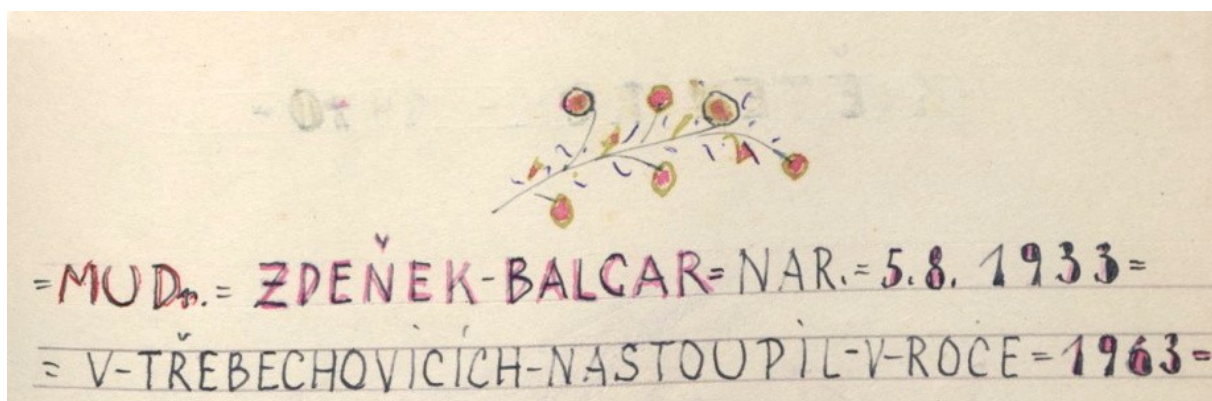 =MUDr.= ZDEŇEK-BALCAR= NAR.= 5.8. 1933=
= V-TŘEBECHOVICÍCH-NASTOUPIL-V-ROCE=1963=